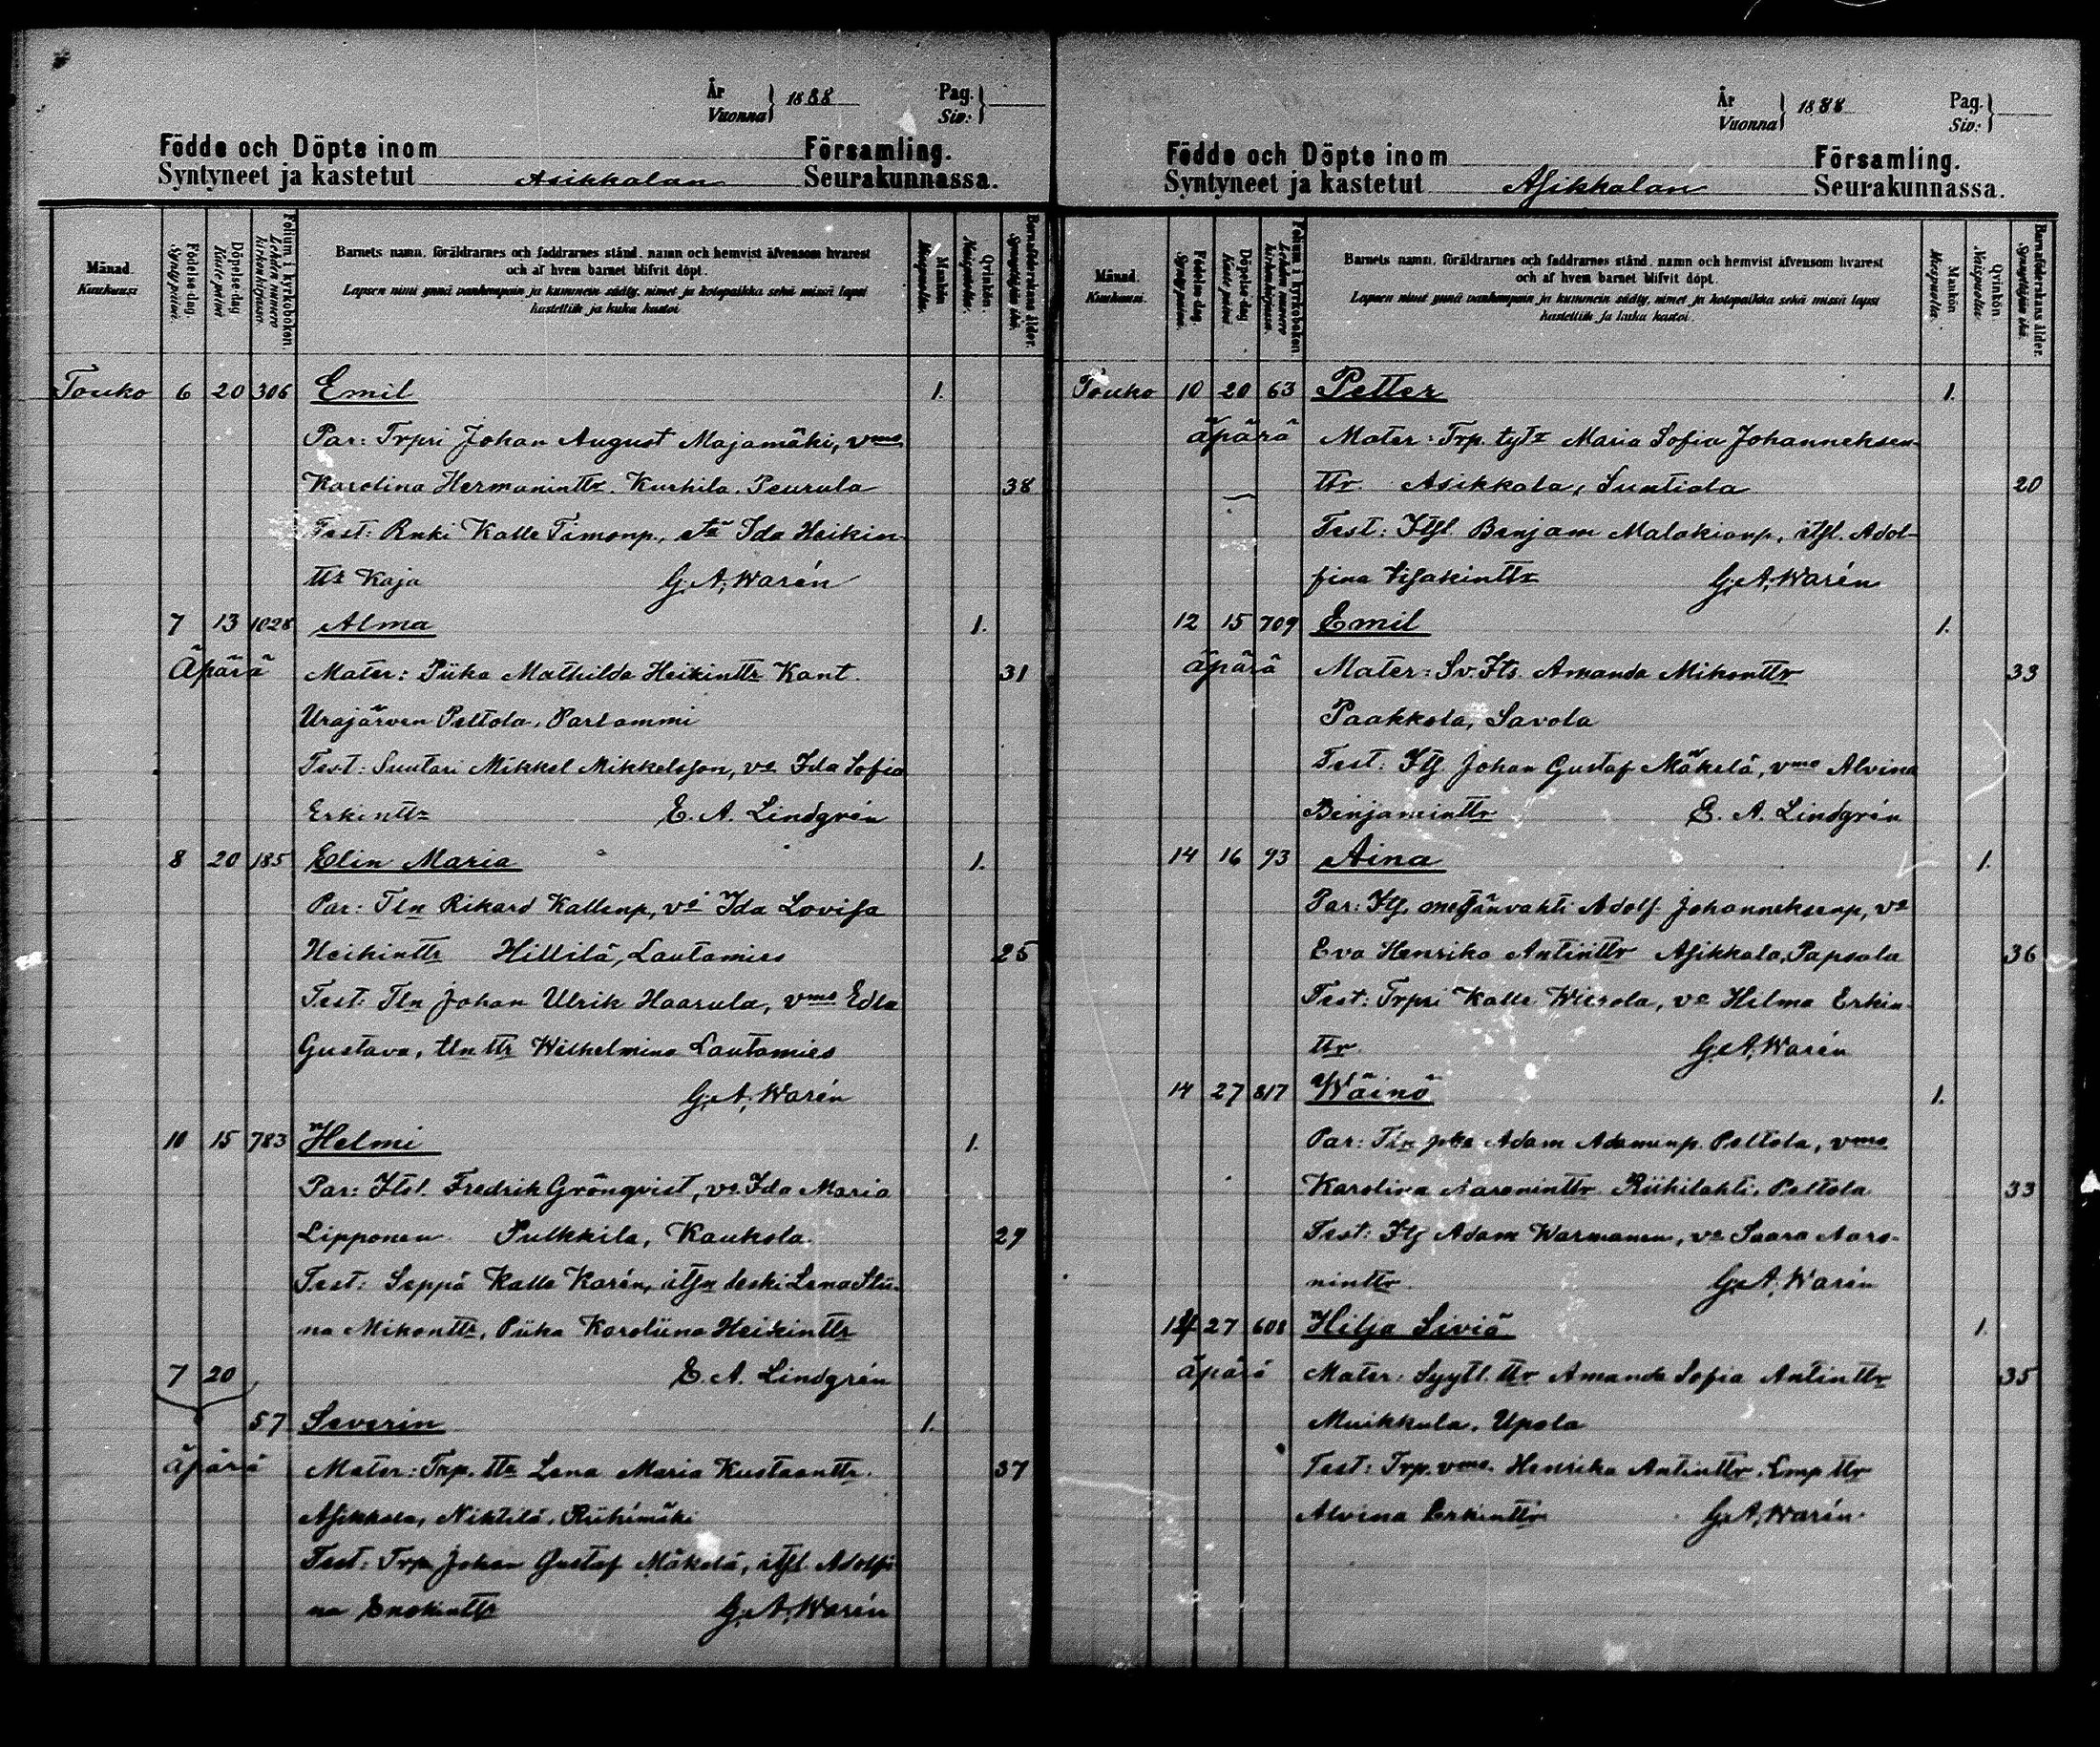 År
Vuonna } 1888 Pag.
Siv: }
Födde och Döpte inom Församling.
Syntyneet ja kastetut Asikkalan Seurakunnassa.
Månad
Kuukausi
Födelse-dag.
Syntypäivä.
Döpelse-dag
Kastepäivä
Folium i kyrkoboken.
Lehden numero
kirkonkirjassa.
Barnets namn, föräldrarnes och faddrarnes stånd, namn och hemvist äfvensom hvarest
och af hvem barnet blifvit döpt.
Lapsen nimi ynnä vanhempain ja kummein sääty, nimet ja kotopaikka sekä missä lapsi
kastettiin ja kuka kastoi.
Mankön
Miespuolta.
Qvinkön.
Naispuolta.
Barnaföderskans ålder.
Synnyttäjän ikä.
Touko 6 20 306 Emil 1.
Par: Trpri Johan August Majamäki, vmo
Karolina Hermaninttr. Kurhila, Peurula 38
Test: Rnki Kalle Timonp., Ida Heikin
ttr Kaja G. A. Warén
7 13 1028 Alma 1.
Äpärä Mater: Piika Mathilda Heikinttr Kant. 31
Urajärven Peltola, Partammi
Test: Suutari Mikkel Mikkelsson, vo Ida Sofia
Erkinttr E. A. Lindgrén
8 20 185 Elin Maria 1.
Par: Tln Rikard Kallenp, vo Ida Lovisa
Heikinttr Hillilä, Lautamies 25
Test: Tln Johan Ulrik Haarula, vmo Edla
Gustava, tln ttr Wilhelmina Lautamies
G. A. Warén
10 15 783 Helmi 1.
Par: Itsl. Fredrik Grönqvist, vo Ida Maria
Lipponen Pulkkila, Kaukola. 29
Test: Seppä Kalle Karén, itsn leski Lena Stii-
na Mikonttr, Piika Karoliina Heikinttr
7 20 E. A. Lindgrén
57 Severin 1.
äpärä Mater: Trp. ttr Lena Maria Kustaanttr. 37
Asikkala, Niktilä, Riihimäki
Test: Trpn Johan Gustaf Mäkelä, itsl. Adolfi-
na Enokinttr G. A. Warén
År
Vuonna } 1888 Pag.
Siv: }
Födde och Döpte inom Församling.
Syntyneet ja kastetut Asikkalan Seurakunnassa.
Månad.
Kuukausi.
Födelse-dag.
Syntypäivä.
Döpelse-dag.
Kastepäivä
Folium i kyrkoboken.
Lehden numero
kirkonkirjassa.
Barnets namn, föräldrarnes och faddrarnes stånd, namn och hemvist äfvensom hvarest
och af hvem barnet blifvit döpt.
Lapsen nimi ynnä vanhempain ja kummein sääty, nimet ja kotopaikka sekä missä lapsi
kastettiin ja kuka kastoi.
Mankön
Miespuolta.
Qvinkön
Naispuolta.
Barnaföderskans ålder.
Synnyttäjän ikä.
Touko 10 20 63 Petter 1.
äpärä Mater: Trp. tytr Maria Sofia Johanneksen-
ttr. Asikkala, Suntiola 20
Test: Itsl. Benjam Malakianp, itsl. Adol-
fina Iisakinttr G. A. Warén
12 15 709 Emil 1.
äpärä Mater: Sv. Its. Amanda Mikonttr 33
Paakkola, Savola
Test: Its Johan Gustaf Mäkelä, vmo Alvina
Benjaminttr E. A. Lindgrén
14 16 93 Aina 1.
Par: Its. metsänvahti Adolf Johanneksenp, vo
Eva Henrika Antinttr Asikkala, Papsala 36
Test: Trpri Kalle Wierola, vo Hilma Erkin-
ttr. G. A. Warén
14 27 817 Wäinö 1.
Par: Tln pka Adam Adaminp. Peltola, vmo
Karolina Aaroninttr Riihilahti, Peltola 33
Test: Its Adam Warmanen, vo Saara Aaro-
ninttr. G. A. Warén
14 27 608 Hilja Siviä 1.
äpärä Mater: Syytl. ttr Amanda Sofia Antinttr 35
Muikkula, Upola
Test: Trp. vmo. Henrika Antinttr, Lmp ttr
Alvina Erkinttr G. A. Warén